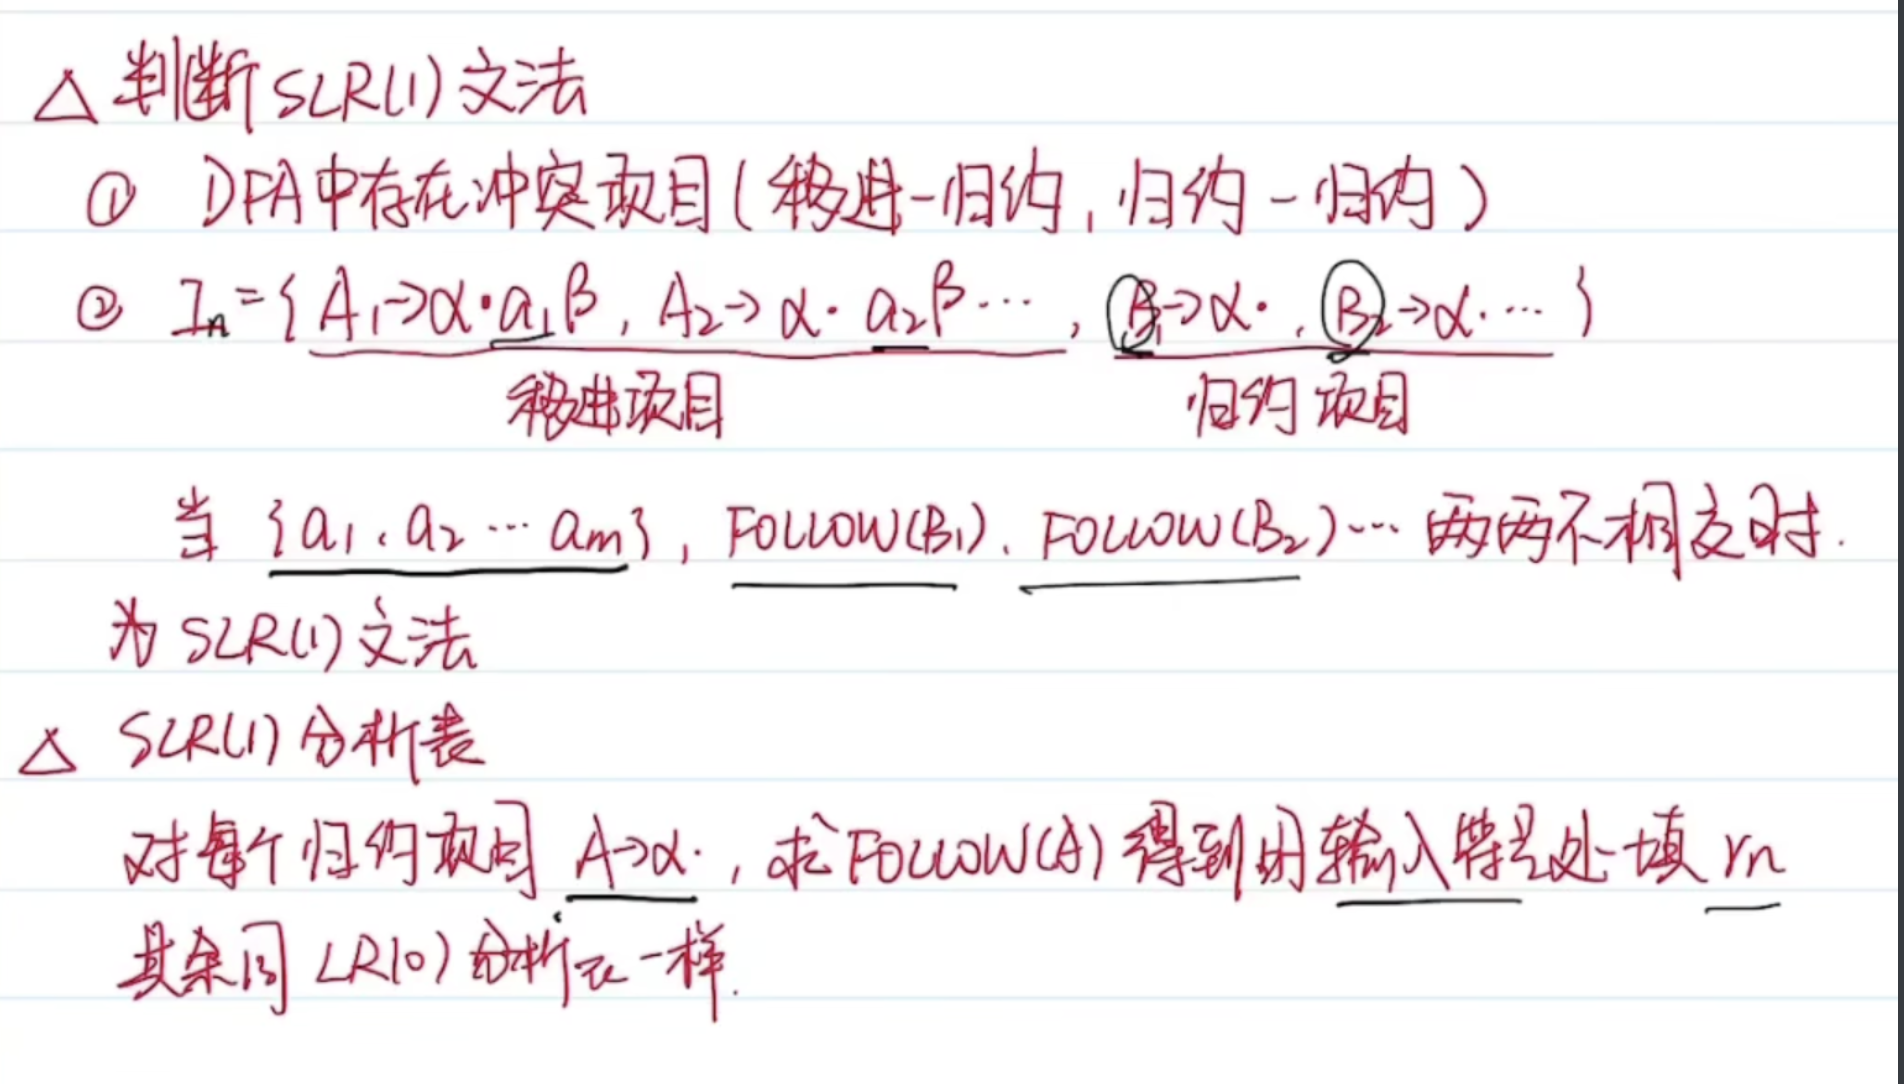 △ 判断SLR(1)文法
① DFA中存在冲突项目(移进-归约,归约-归约)
② In={A₁→α·a₁β, A₂→α·a₂β…, B₁→α·, B₂→α·…}
移进项目 归约项目
当{a₁、a₂…am}, FOLLOW(B₁)、FOLLOW(B₂)…两两不相交时.
为SLR(1)文法
△ SLR(1)分析表
对每个归约项目A→α·,求FOLLOW(A)得到的输入符号处填rn
其余同LR(0)分析表一样.